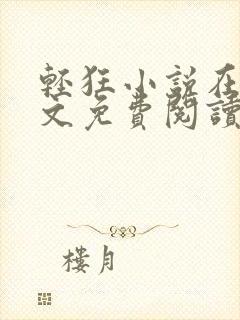 輕狂小說在
文免費閱讀
樓月